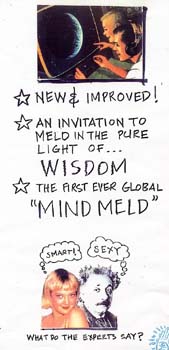 ☆ NEW & IMPROVED!
☆ AN INVITATION TO
MELD IN THE PURE
LIGHT OF...
WISDOM
☆ THE FIRST EVER GLOBAL
"MIND MELD"
SMART!
SEXY
WHAT DO THE EXPERTS SAY?